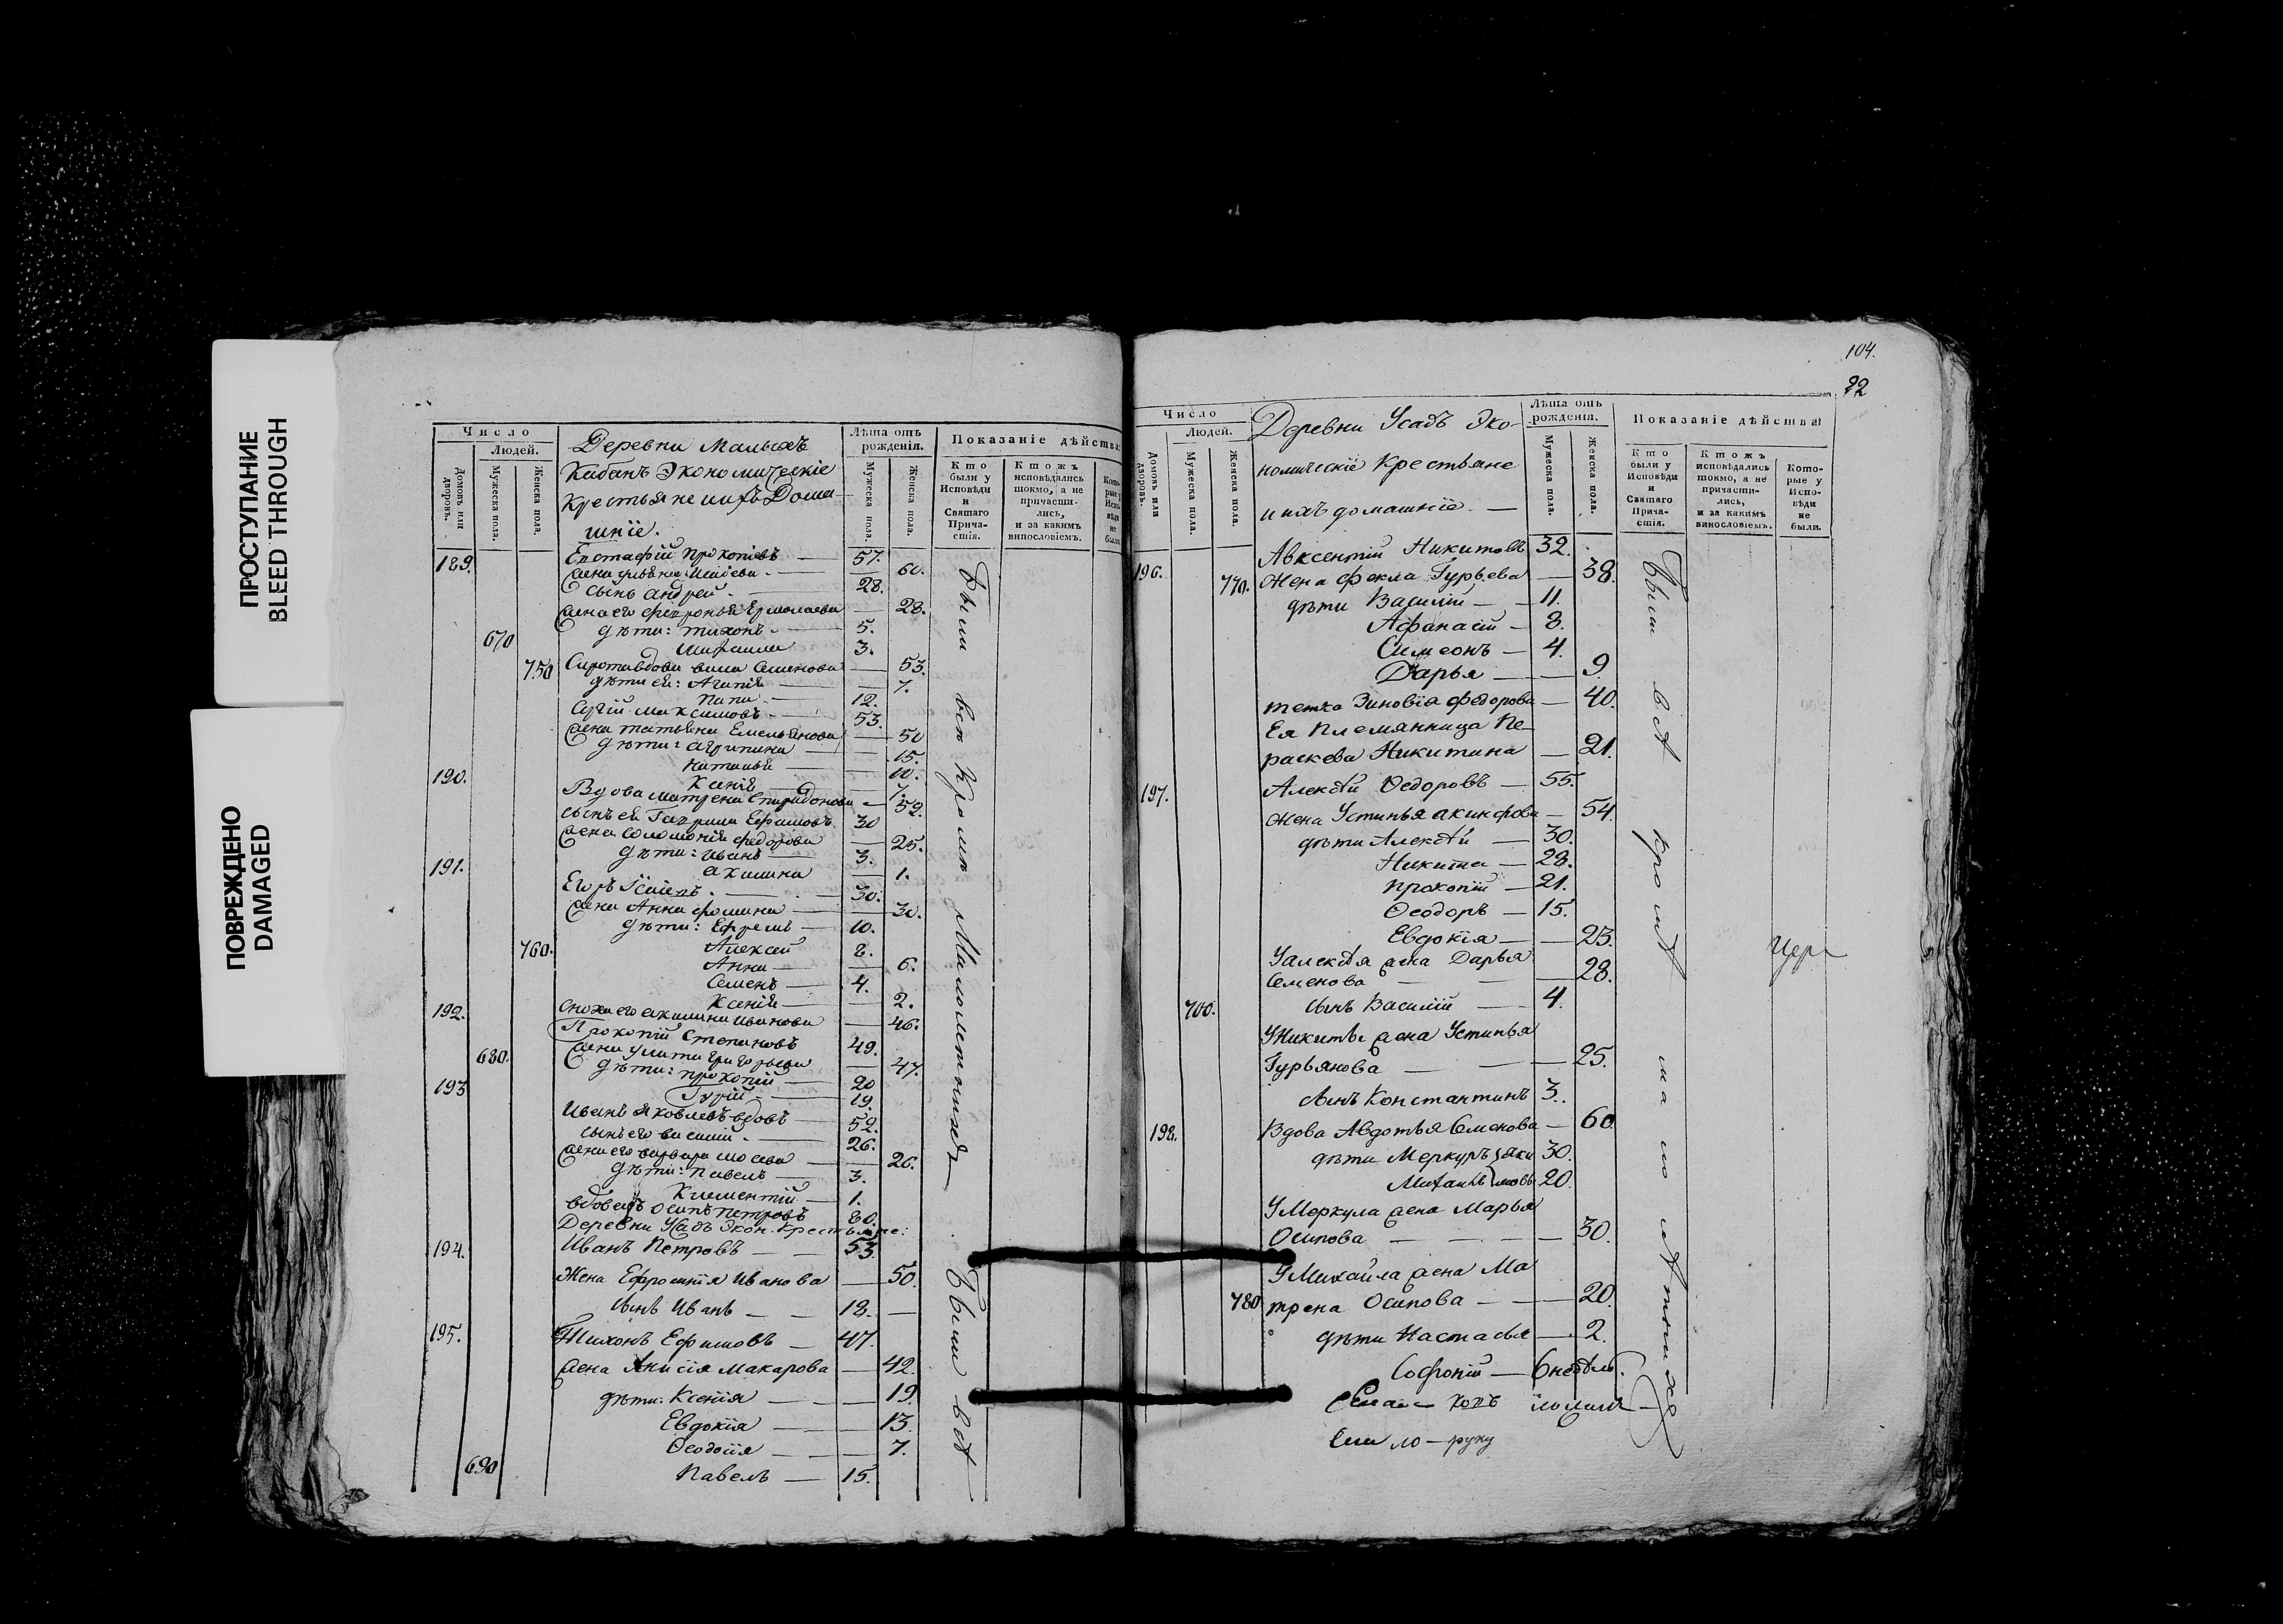 ПРОСТУПАНИЕ
BLEED THROUGH
ПОВРЕЖДЕНО
DAMAGED
Число
Людей.
Домовъ или дворовъ.
Мужеска пола.
Женска пола.
Деревни Малыхъ
Кабанъ Экономическіе
Крестьяне ихъ Дома
шніе.
Лѣта отъ рождения.
Мужеска пола.
Женска пола.
Показаніе дѣйства
Кто были у Исповѣди и Святаго Прича-стія.
Ктожъ исповѣдались токмо, а не причасти-лись, и за какимъ винословіемъ.
189. Евстафій Прокопіевъ — 57.
60.
сынъ Андрей — 28.
28.
дѣти: Тихонъ — 5.
670 Михаила 3.
750 вдова Семенова — 53.
дѣти ея: 7.
12.
Сергій Максимовъ — 53.
жена Татьяна Емельянова — 50
дѣти: Агрипина — 15.
Наталья — 10.
Ксенія — 7.
190. Вдова Матрена Спиридонова — 52.
сынъ ея Гаврила Ефимовъ 30
жена Соломонія Федорова — 25.
дѣти: Иванъ — 3.
Акилина — 1.
191. Егоръ 30.
жена Анна Фомина — 30.
дѣти: Ефремъ — 10.
760. Алексей 8.
Анна — 6.
Семенъ — 4.
Ксенія — 2.
Акилина Иванова — 46.
192. Прокопій Степановъ 49.
жена Улита Григорьева — 47.
680. дѣти: Прокопій — 20
Гурій — 19.
193 Иванъ Яковлевъ вдовъ — 52.
сынъ его Василій — 26.
жена его Варвара — 26.
дѣти: Павелъ — 3.
Климентій — 1.
вдовецъ Осипъ Петровъ 80.
Деревни Усадъ Экон. Крестьяне:
194. Иванъ Петровъ — 53.
Жена Ефросинія Иванова — 50.
сынъ Иванъ — 18. —
195. Тихонъ Ефимовъ — 47.
жена Анисія Макарова — 42.
дѣти: Ксенія — 19.
Евдокія — 13.
Ѳеодосія — 7.
690 Павелъ — 15.
Были всѣ Кромѣ Малолетнихъ
Были всѣ
104.
92
Число
Людей.
Домовъ или дворовъ.
Мужеска пола.
Женска пола.
Деревни Усадъ Эко-
номическіе Крестьяне
и ихъ домашніе. —
Лѣта отъ рождения.
Мужеска пола.
Женска пола.
Показаніе дѣйства
Кто были у Исповѣди и Святаго Прича-стія.
Ктожъ исповѣдались токмо, а не причасти-лись, и за какимъ винословіемъ.
Кото-рые у Испо-вѣди не были.
196. Авксентій Никитовъ 32.
770. Жена Фекла Гурьева — 38.
дѣти Василій — 11.
Афанасій — 8.
Симеонъ — 4.
Дарья — 9.
тетка Зиновія Федорова — 40.
Ея Племянница Пе-
раскева Никитина — 21.
197. Алексѣй Ѳедоровъ — 55.
жена Устинья Акинфова — 54.
дѣти Алексѣй — 30.
Никита — 28.
Прокопій — 21.
Ѳеодоръ — 15.
Евдокія — 23.
У Алексѣя жена Дарья
Семенова — 28.
700. сынъ Василій — 4.
У Никиты жена Устинья
Гурьянова — 25.
сынъ Константинъ 3.
198. Вдова Авдотья Семенова — 60.
дѣти Меркулъ } Яки 30.
Михаилъ } мовы 20.
У Меркула жена Марья
Осипова — 30.
У Михаила жена Ма
780 трена Осипова — 20.
дѣти Настасья — 2.
Софроній — 6 недѣль.
руку
Были всѣ кромѣ малолѣтнихъ